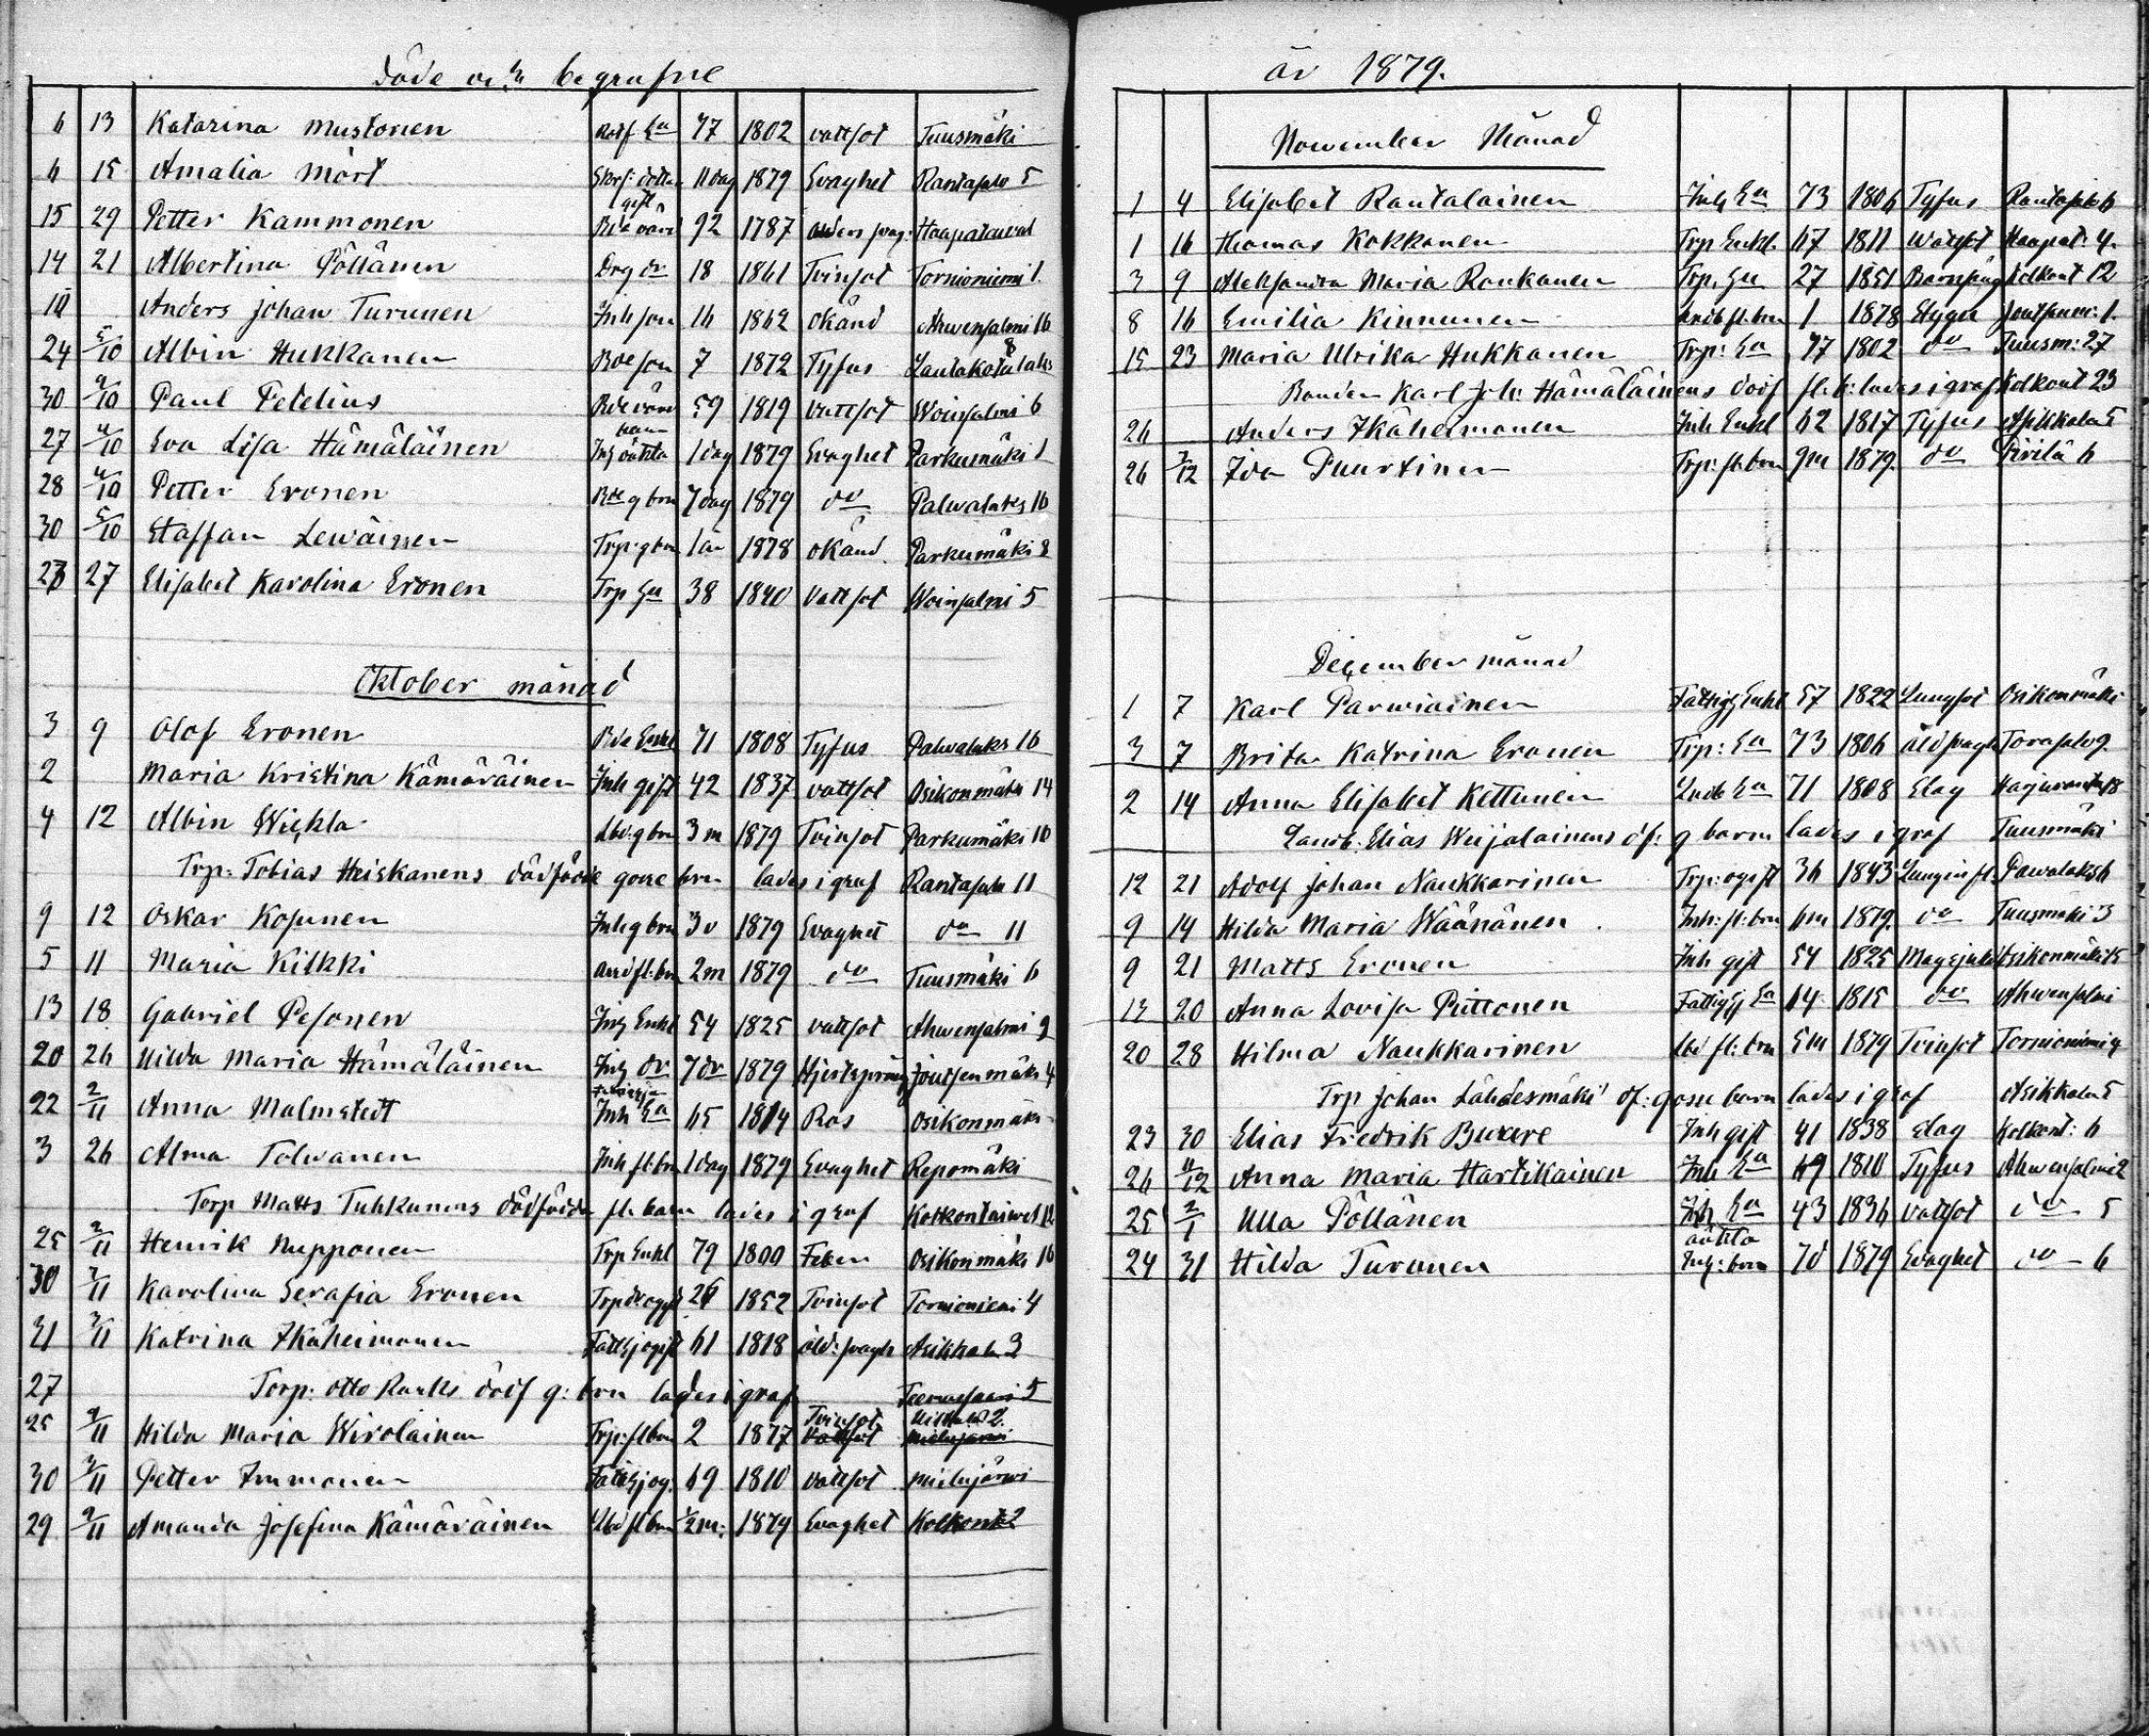 Döde och begrafne
6 13 Katarina Mustonen 77 1802 vattsot Tuusmäki
6 15 Amalia Mört 11 dag 1879 Svaghet Rantasalo 5
gift
15 29 Petter Kammonen Bde 92 1787 Haapataival
14 21 Albertina Pöllänen Drg dr 18 1861 Tvinsot Tornioniemi 1.
10 Anders Johan Turunen Inh son 16 1862 okänd Ahvensalmi 16
24 5/10 Albin Hukkanen Bde son 7 1872 Tyfus
30 Paul Fetelius Bde 59 1819 vattsot Woinsalmi 6
27 Eva Lisa Hämäläinen oäkta 1 dag 1879 Svaghet Parkumäki 1
28 Petter Eronen Bde g brn 7 dag 1879 do Palvalaks 16
30 5/10 Staffan Lewäinen Trp: g brn 1 år 1878 okänd Parkumäki 8
27 Elisabet Karolina Eronen Trp Ha 38 1840 Vattsot Woinsalmi 5
Oktober månad
3 9 Olof Eronen Bde Enkl 71 1808 Tyfus Palvalaks 16
2 Maria Kristina Kämäräinen Inh gift 42 1837 vattsot Osikonmäki 14
4 12 Albin Wichla g brn 3 m 1879 Tvinsot Parkumäki 10
Trp: Tobias Heiskanens dödfödde gosse brn lades i graf Rantasalo 11
9 12 Oskar Kosunen Inh g brn 3 v 1879 Svaghet do 11
5 11 Maria Kilkki fl: brn 2 m 1879 do Tuusmäki 6
13 18 Gabriel Pesonen Inh Enkl 54 1825 vattsot Ahvensalmi 2
20 26 Hilda Maria Hämäläinen Inh dr 7 1879 Joutsenmäki 4
22 2/11 Anna Malmstedt Inh Ea 65 1814 Ros Osikonmäki
3 26 Alma Tolwanen Inh fl: brn 1 dag 1879 Svaghet Repomäki
Torp Matts Tuhkunens dödfödda fl: barn lades i graf Kolkontaival 12
25 2/11 Henrik Nupponen Trp Enkl 79 1800 Feber Osikonmäki 16
30 2/11 Karolina Serafia Eronen Trp dr ogift 26 1852 Tvinsot Tornioniemi 4
31 2/11 Katrina Ikäheimonen 61 1818 Asikkala 3
27 Torp: Otto dödf g: brn lades i graf 5
25 2/11 Hilda Maria Wirolainen Trp: fl brn 2 1877 Tvinsot
30 2/11 Petter Immonen 69 1810 vattsot Mielujärvi
29 2/11 Amanda Josefina Kämäräinen fl brn 1/2 m: 1879 Svaghet Kolkont 2
år 1879.
November Månad
1 4 Elisabet Rantalainen Inh Ea 73 1806 Tyfus Rantasalo 6
1 16 Thomas Kokkonen Trp Enkl. 67 1811 Wattsot Haapat: 4.
3 9 Aleksandra Maria Ronkanen Trp. Hu 27 1851 Barnsäng Kolkont 12
8 16 Emilia Kinnunen fl. brn 1 1878 1.
15 23 Maria Ulrika Hukkanen Trp: Ea 77 1802 do Tuusm: 27
Bonden Karl Joh: Hämäläinens dödf fl. b: lades i graf Kolkont 23
26 Anders Ikäheimonen Inh Enkl 62 1817 Tyfus Asikkala 5
26 Ida Puurtinen Trp: fl: brn 9 m 1879. do Pirilä 6
December månad
1 7 Karl Parwiainen Fattighj Enkl 57 1822 Lungsot Osikonmäki
3 7 Brita Katrina Eronen Trp: Ea 73 1806 Torasalo 9.
2 14 Anna Elisabet Kettunen Ea 71 1808 Slag Harjuranta 18
Landb: Elias Weijalainens df: g barn lades i graf Tuusmäki
12 21 Adolf Johan Naukkarinen Trp: ogift 36 1843 Palvalaks 6
9 14 Hilda Maria Wäänänen Inh: fl: brn 6 m 1879. do Tuusmäki 3
9 21 Matts Eronen Inh gift 54 1825 Osikonmäki 15
20 Anna Lovisa Puttonen Fattighj Ea 64 1815 do Ahvensalmi
20 28 Hilma Naukkarinen fl: brn 5 m 1879 Tvinsot Tornioniemi 9
Trp Johan Lähdesmäki df: gosse barn lades i graf Asikkala 5
23 30 Elias Fredrik Buure Inh gift 41 1838 Slag Kolkont: 6
26 Anna Maria Hartikainen Inh Ea 69 1810 Tyfus Ahvensalmi 2
25 2/1 Ulla Pöllänen Inh Ea 43 1836 Vattsot do 5
oäkta
24 31 Hilda Turunen Inh: brn 7 d 1879 Svaghet do 6